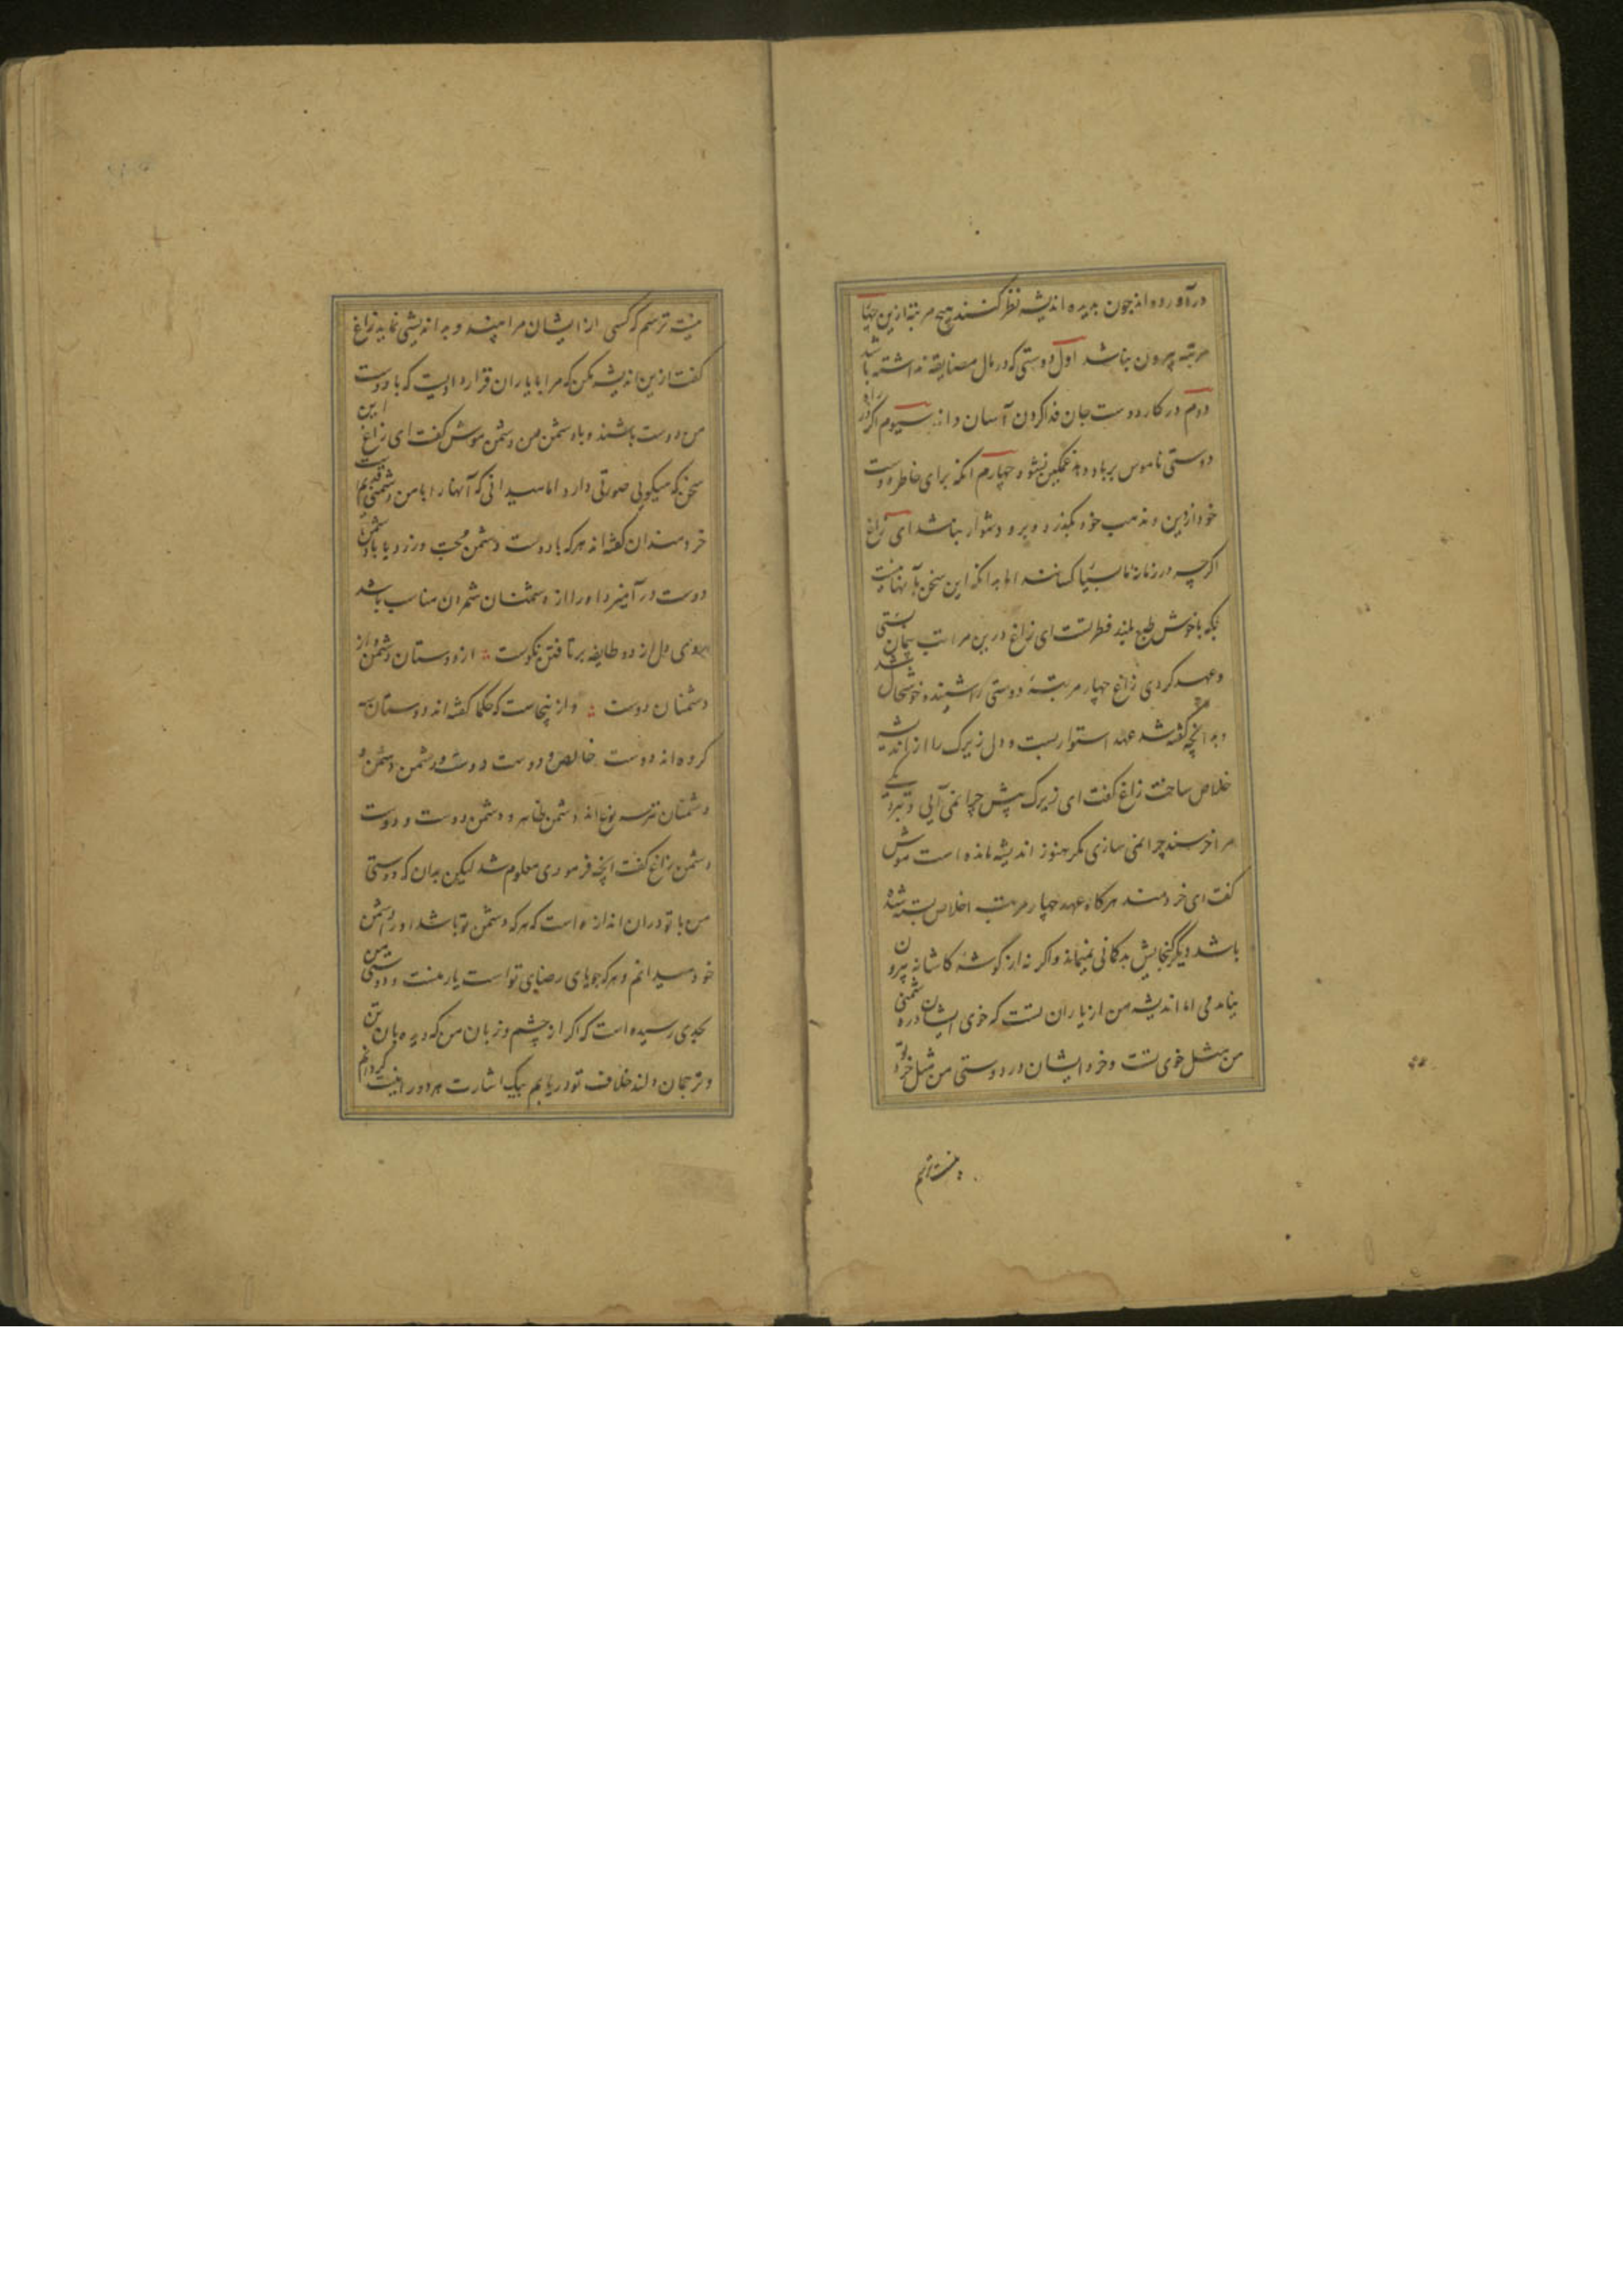 در آورده اند چون بدیده اندیشه نظر کنند هیچ مرتبه ازین چهار
مرتبه بیرون نباشد اول دوستی که در مال مضایقه نداشته باشد
دوم در کار دوست جان فدا کردن آسان داند سیوم اگر در راه
دوستی ناموس برباد دهد غمگین نشود چهارم آنکه برای خاطر دوست
خود از دین و مذهب خود بگذرد و برو دشوار نباشد ای زاغ
اگرچه در زمانه ما بسیار کسانند اما بدانکه این سخن با آنها نیست
بلکه با خوش طبع بلند فطرتست ای زاغ درین مراتب پیمان بستی
و عهد کردی زاغ چهار مرتبهٔ دوستی را شنیده خوشحال شد
و بدانچه گفته شد عهد استوار بست و دل زیرک را از اندیشه
خلاص ساخت زاغ گفت ای زیرک پیش چرا نمی آیی و
مرا خرسند چرا نمی سازی مگر هنوز اندیشه مانده است موش
گفت ای خردمند هرگاه عهد چهار مرتبه اخلاص بسته شده
باشد دیگر گنجایش بدگمانی نمیماند و اگر نه از گوشه کاشانه بیرون
نیامدمی اما اندیشه من از یاران تست که خوی ایشان در دشمنی
من مثل خوی تست و خرد ایشان در دوستی من مثل خرد تو
نیست ترسم
نیست ترسم که کسی از ایشان مرا بیند و بد اندیشی نماید زاغ
گفت ازین اندیشه مکن که مرا با یاران قرار دادیست که با دوست
من دوست باشند و با دشمن من دشمن موش گفت ای زاغ این
سخن که میگویی صورتی دارد اما میدانی که آنها را با من دشمنی قدیم است
خردمندان گفته اند هرکه با دوست دشمن محبت ورزد یا با دشمن
دوست در آمیزد او را از دشمنان شمردن مناسب باشد
روی دل از دو طایفه برتافتن نکوست ؞ از دوستان دشمن و از
دشمنان دوست ؞ و از نیجاست که حکما گفته اند دوستان سه
گروه اند دوست خالص و دوست دوست و دشمن دشمن و
دشمنان نیز سه نوع اند دشمن ظاهر و دشمن دوست و دوست
دشمن زاغ گفت آنچه فرمودی معلوم شد لیکن بدان که دوستی
من با تو در ان اندازه است که هرکه دشمن تو باشد او را دشمن
خود میدانم و هرکه جویای رضای تو است یار منست و دوستی من
بحدی رسیده است که اگر از چشم و زبان من که دیده بان تن
و ترجمان دلند خلاف تو دریابم بیک اشارت هر دو را نیست گردانم